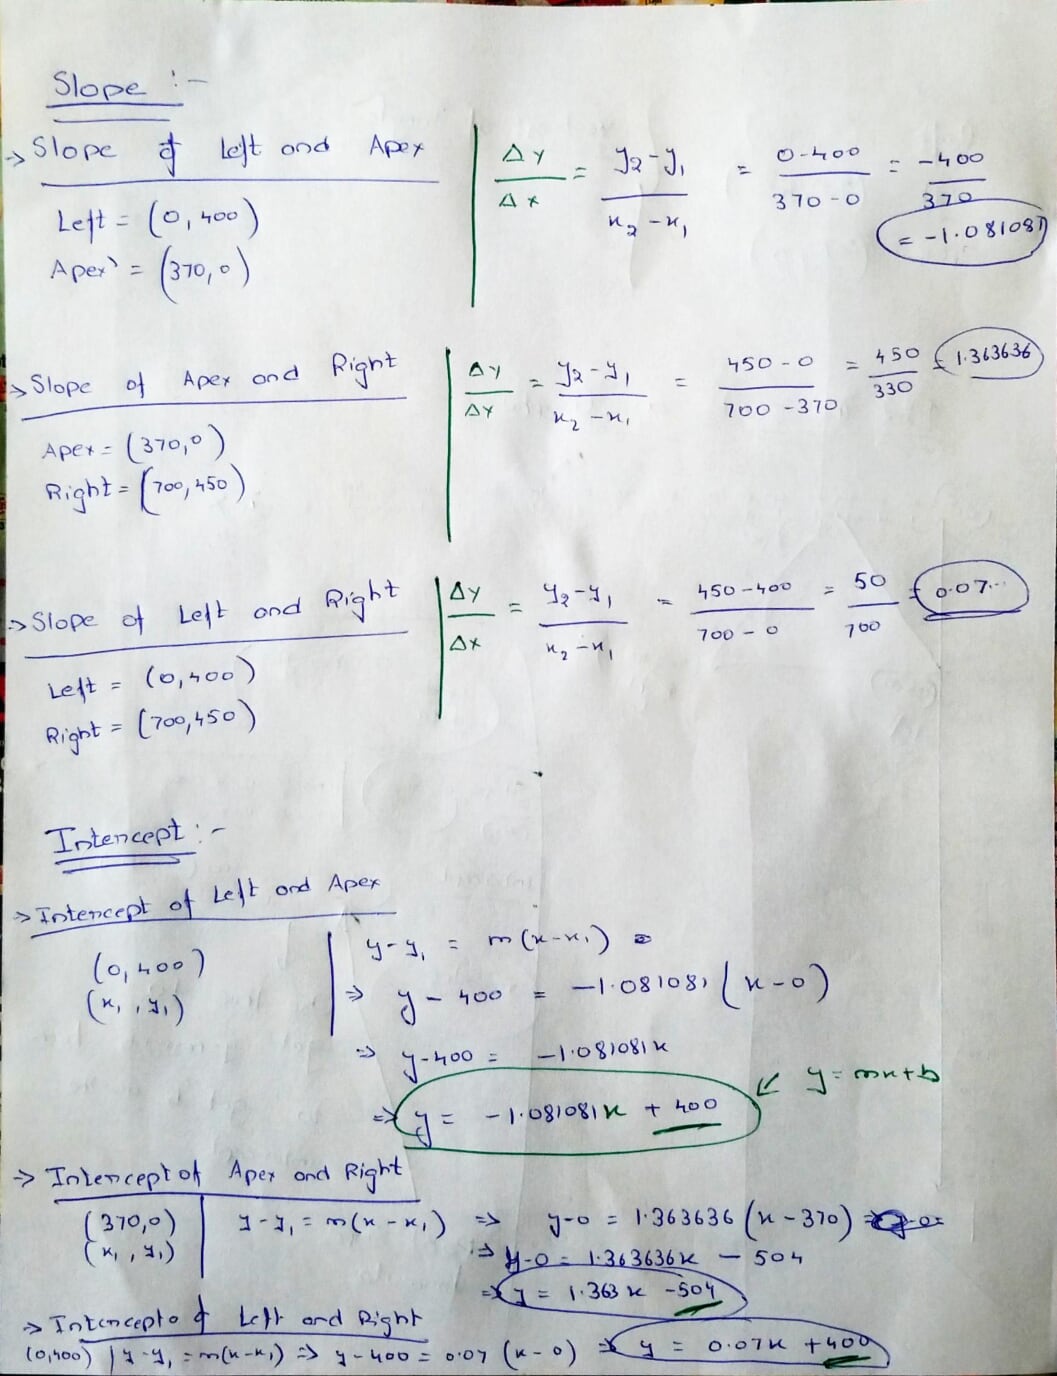 Slope :-
→ Slope of Left and Apex
Left = (0, 400)
Apex = (370, 0)
Δy/Δx = y₂-y₁/x₂-x₁ = 0-400/370-0 = -400/370
= -1.081081
→ Slope of Apex and Right
Apex = (370, 0)
Right = (700, 450)
Δy/Δx = y₂-y₁/x₂-x₁ = 450-0/700-370 = 450/330 = 1.363636
→ Slope of Left and Right
Left = (0, 400)
Right = (700, 450)
Δy/Δx = y₂-y₁/x₂-x₁ = 450-400/700-0 = 50/700 = 0.07..
Intercept :-
→ Intercept of Left and Apex
(0, 400)
(x₁, y₁)
y-y₁ = m(x-x₁)
⇒ y - 400 = -1.081081 (x-0)
⇒ y-400 = -1.081081x
⇒ y = -1.081081x + 400
↙ y=mx+b
→ Intercept of Apex and Right
(370, 0)
(x₁, y₁)
y-y₁ = m(x-x₁) ⇒ y-0 = 1.363636 (x-370)
⇒ y-0 = 1.363636x - 504
⇒ y = 1.363x -504
→ Intercept of Left and Right
(0,400) | y-y₁ = m(x-x₁) ⇒ y-400 = 0.07 (x-0) ⇒ y = 0.07x +400